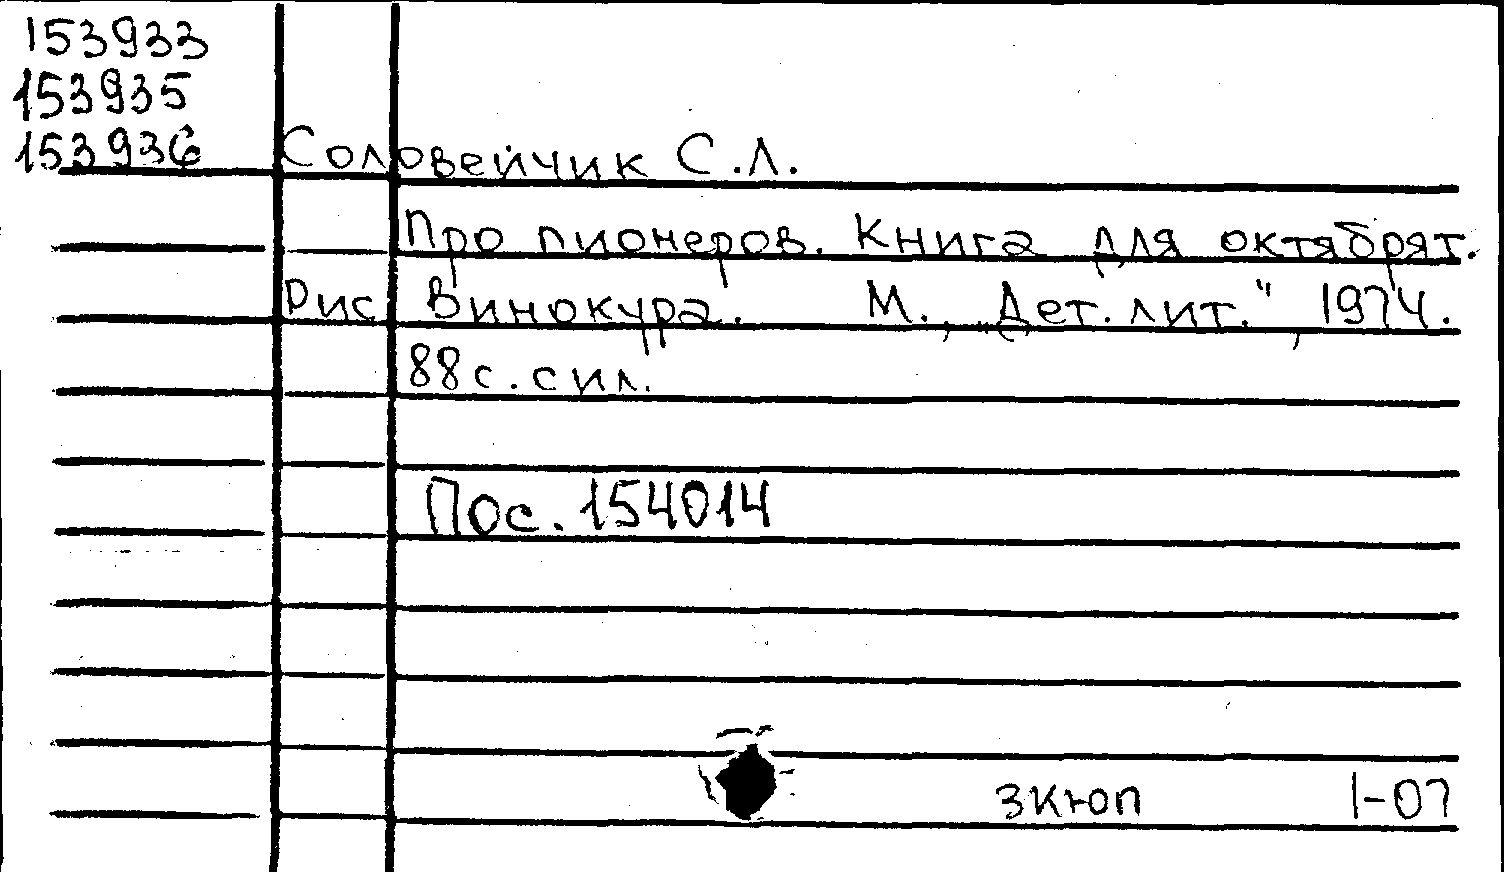 153933
153935
153936
Соловейчик С.Л.
Про пионеров. Книга для октябрят.
Рис. Винокура. М., „Дет. лит.", 1974.
88с. сил.
Пос. 154014
3кюп 1-07